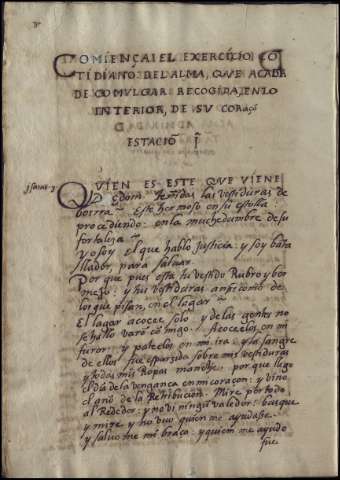 COMIENÇA EL EXERCICIO CO
TIDIANO DEL ALMA, QUE ACABA
DE COMULGAR: RECOGIDA, EN LO
INTERIOR, DE SU CORaçõ
ESTACIÕ j
QUIEN ES ESTE QUE VIENE
De Edom teñidas las vestiduras de
bosrra. Este hermoso en su estolla:
procediendo: en la muchedumbre de su
fortaleza
yo soy el que hablo justicia: y soy bata
llador, para saluar.
Por que pues esta tu vestido Rubro y ber
mejo: y tus vestiduras ansi como de
los que pisan, en el lagar
El lagar acocee solo y de las gentes no
se hallo varõ cõmigo. Acoceelos, en mi
furor: y pateelos en mi ira: y la sangre
de ellos fue esparzida sobre mis vestiduras
y todas mis Ropas manche: por que llego
el dia de la vengança en mi coraçon: y vino
el año de la Retribuciõ. Mire por todo
al Rededor: y no vi ningũ valedor: busque
y mire y no huvo quien me ayudase
y saluo me mi braço: y quien me ayudo
fue